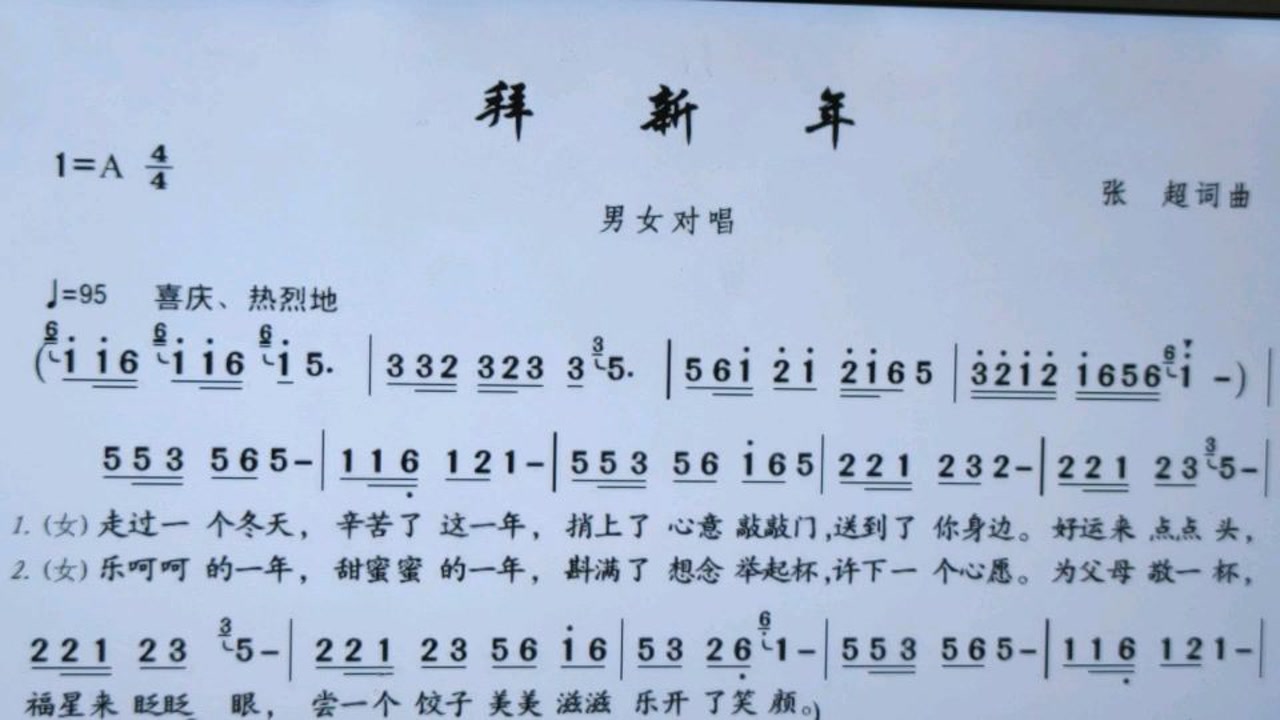 拜新年
1=A 4/4
张 超词曲
男女对唱
♩=95 喜庆、热烈地
(6 1 1 6 6 1 1 6 6 1 5. | 3 3 2 3 2 3 3 3 5. | 5 6 1 2 1 2 1 6 5 | 3 2 1 2 1 6 5 6 6 1 –) |
5 5 3 5 6 5 – | 1 1 6 1 2 1 – | 5 5 3 5 6 1 6 5 | 2 2 1 2 3 2 – | 2 2 1 2 3 3 5 – |
1. (女) 走过一 个冬天, 辛苦了 这一年, 捎上了 心意 敲敲门,送到了 你身边。 好运来 点点 头,
2. (女) 乐呵呵 的一年, 甜蜜蜜 的一年, 斟满了 想念 举起杯,许下一 个心愿。 为父母 敬一 杯,
2 2 1 2 3 3 5 – | 2 2 1 2 3 5 6 1 6 | 5 3 2 6 6 1 – | 5 5 3 5 6 5 – | 1 1 6 1 2 1 – |
福星来 眨眨 眼, 尝一个 饺子 美美 滋滋 乐开 了笑 颜。)